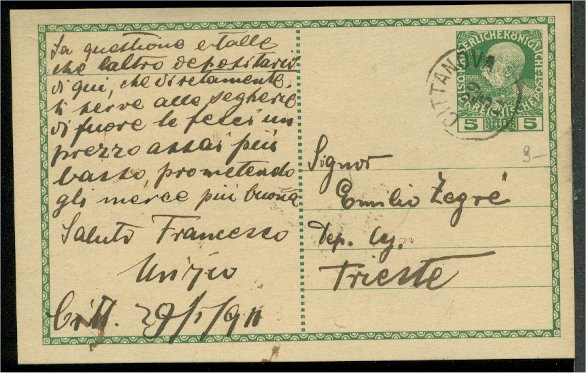 La questione e talle
che l'altro depositario
di qui, che diretamente
ti serve alle segherie
di fuore le feci un
prezzo assai più
basso promettendo
gli merce più buona
Saluto Francesco
Citt. 29/1/911
CITTANOVA
KAISERLICHE KÖNIGLICHE ÖSTERREICHISCHE POST
5 5
9-
Signor
Emilio Zegrè
Dep. Leg.
Trieste